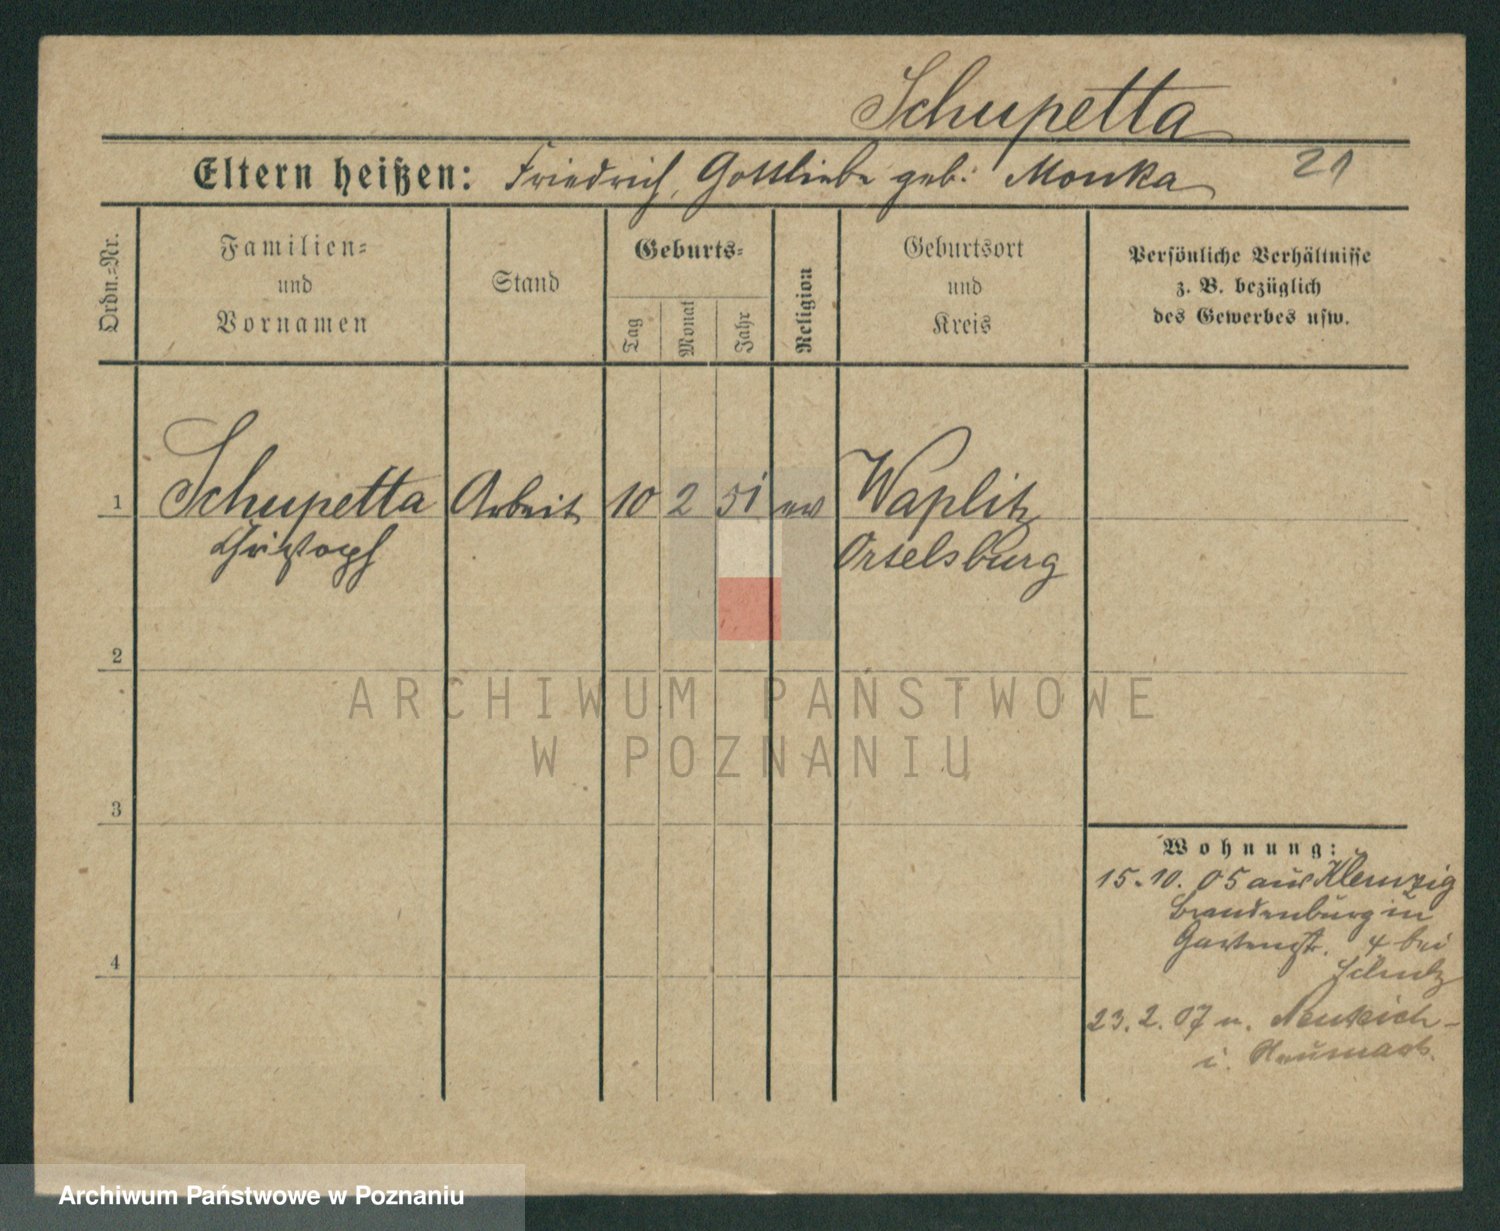 Schupetta
Eltern heißen: Friedrich, Gottliebe geb: Monka 21
Ordn.=Nr.
Familien=
und
Vornamen
Stand
Geburts=
Tag
Monat
Jahr
Religion
Geburtsort
und
Kreis
Persönliche Verhältnisse
z. B. bezüglich
des Gewerbes usw.
1 Schupetta Arbeit 10 2 51 ev Waplitz
Christoph Ortelsburg
2
3
4
Wohnung:
15.10.05 aus Klemzig
Brandenburg in
Gartenstr. 4 bei
23.2.07 n.
i. Neumark.
ARCHIWUM PAŃSTWOWE
W POZNANIU
Archiwum Państwowe w Poznaniu